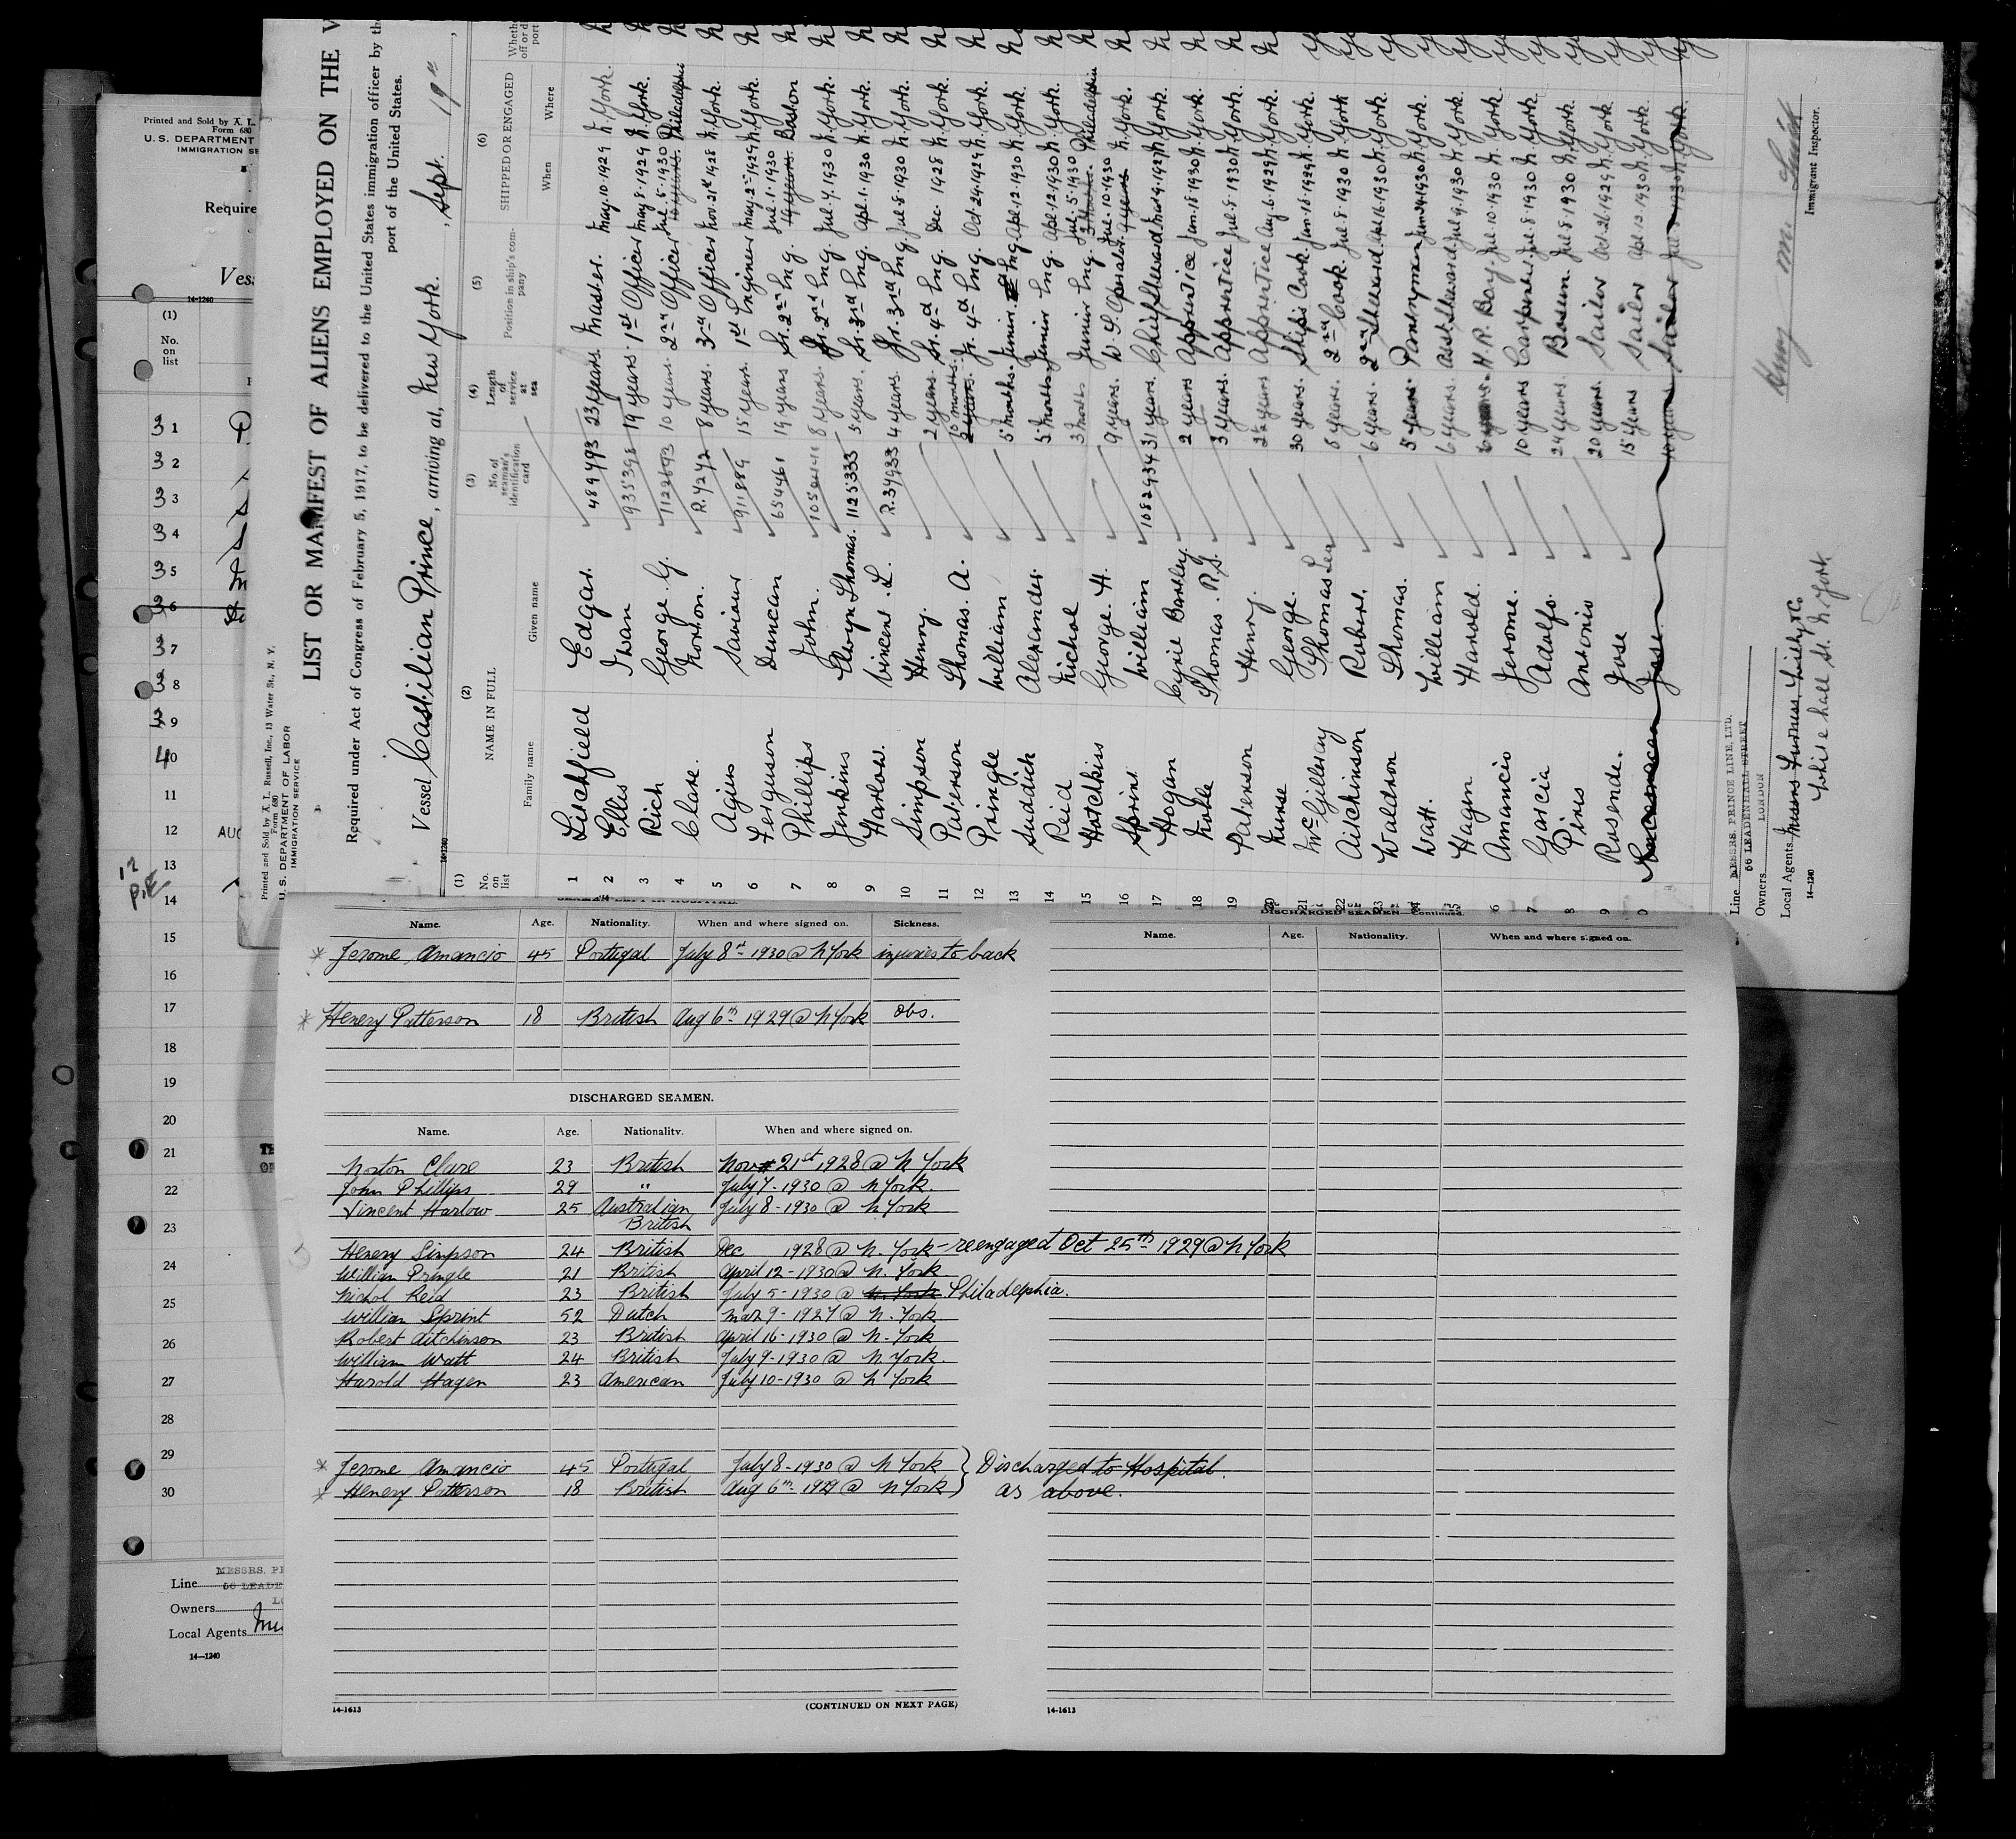 Printed and Sold by A. L.
Form 680
U. S. DEPARTMENT
IMMIGRATION SE
Require
Vess
14-1240
(1)
No.
on
list
31
32
33
34
35
36
37
38
39
40
11
12 AUG
13
14
15
16
17
18
19
20
21
22
23
24
25
26
27
28
29
30
Line MESSRS. PR
56 LEADE
Owners
Local Agents
14—1240
Printed and Sold by A. L. Russell, Inc., 13 Water St., N. Y.
Form 680
U. S. DEPARTMENT OF LABOR
IMMIGRATION SERVICE
LIST OR MANIFEST OF ALIENS EMPLOYED ON THE V
Required under Act of Congress of February 5, 1917, to be delivered to the United States immigration officer by the
port of the United States.
Vessel Castilian Prince, arriving at, New York. , Sept. 19th ,
14-1240
(1) (2) (3) (4) (5) (6)
No. on list NAME IN FULL No. of seaman's identification card Length of service at sea Position in ship's company SHIPPED OR ENGAGED
Family name Given name When Where
1 Litchfield Edgar. 489493 23 years. Master. May. 10. 1929 N. York.
2 Ellis Ivan 935398 19 years. 1st Officer May 8. 1929 N. York.
3 Rich George. G. 1122693 10 years. 2nd Officer Jul. 5. 1930 Philadelphi
4 Clare. Norton. R. 4272 8 years. 3rd Officer Nov. 21st 1928 N. York.
5 Agius Saviour 911889 15 years. 1st Enginer May. 2nd 1929 N. York.
6 Ferguson Duncan 654461 19 years Sr. 2nd Eng. Jul. 1. 1930 Boston
7 Phillips John. 8 years. Jr. 2nd Eng. Jul. 7. 1930 N. York.
8 Jenkins Elwyn Thomas. 1125333 5 years. Sr. 3rd Eng. Apl. 1. 1930 N. York.
9 Harlow. Vincent. L. R. 39933 4 years. Jr. 3rd Eng. Jul. 8. 1930 N. York.
10 Simpson Henry. 2 years. Sr. 4th Eng. Dec. 1928 N. York.
11 Paterson Thomas. A. 10 months. Jr. 4th Eng. Oct. 24. 1929 N. York.
12 Pringle William 5 months. Junior Eng. Apl. 12. 1930 N. York.
13 Suddick Alexander. 5 months Junior Eng. Apl. 12. 1930 N. York.
14 Reid Nichol 3 months Junior Eng. Jul. 5. 1930 Philadelphia
15 Hotchkiss George. H. 9 years. W. T. Operator. Jul. 10. 1930 N. York.
16 Sprint William 1082934 31 years. Chief Steward Mar. 9. 1927 N. York.
17 Hogan Cyril Bartley. 2 years Apprentice Jan. 18. 1930 N. York.
18 Noble Thomas. R. S. 3 years. Apprentice Jul. 8. 1930 N. York.
19 Paterson Henry. Apprentice Aug. 6. 1929 N. York.
20 Nurse George. 30 years. Ships Cook. Jan. 18. 1929 N. York.
21 McGillivray Thomas 5 years. 2nd Cook. Jul. 8. 1930 N. York
22 Aitchinson Robert. 6 years. 2nd Steward. Apl. 16. 1930 N. York.
23 Waldron Thomas. 5 years. Pantryman Jan. 24. 1930 N. York.
24 Watt. William 6 years. Asst. Steward. Jul. 9. 1930 N. York.
25 Hagen Harold. M. R. Boy. Jul. 10. 1930 N. York.
6 Amancio Jerome. 10 years Carpenter. Jul. 8. 1930 N. York.
7 Garcia Adolfo. 24 years. Bosun. Jul. 8. 1930 N. York.
8 Pinis Antonio 20 years. Sailor Oct. 26. 1929 N. York.
9 Rosende. Jose 15 years Sailor Apl. 12. 1930 N. York.
0 Jose 10 years Sailor Jul. 8. 1930 N. York.
Line MESSRS. PRINCE LINE, LTD.
56 LEADENHALL STREET
Owners LONDON
Local Agents Messrs Furness Withy & Co.
Whitehall St. N. York
14—1240
Immigrant Inspector.
SEAMEN LEFT IN HOSPITAL.
Name. Age. Nationality. When and where signed on. Sickness.
* Jerome Amancio 45 Portugal July 8th 1930 @ N York injuries to back
* Henery Patterson 18 British Aug 6th 1929 @ N York Obs.
DISCHARGED SEAMEN.
Name. Age. Nationality. When and where signed on.
Norton Clare 23 British Nov 21st 1928 @ N York
John Phillips 29 " July 7. 1930 @ N York.
Vincent Harlow 25 Australian British July 8 - 1930 @ N York
Henery Simpson 24 British Dec 1928 @ N. York - reengaged Oct 25th 1929 @ N York
William Pringle 21 British April 12 - 1930 @ N. York
Nichol Reid 23 British July 5 - 1930 @ N. York Philadelphia.
William Sprint 52 Dutch Mar 9 - 1927 @ N. York
Robert Aitchinson 23 British April 16 - 1930 @ N. York
William Watt 24 British July 9 - 1930 @ N York.
Harold Hagen 23 American July 10 - 1930 @ N York
* Jerome Amancio 45 Portugal July 8 - 1930 @ N York } Discharged to Hospital.
* Henery Patterson 18 British Aug 6th 1929 @ N York } as above.
14-1613
(CONTINUED ON NEXT PAGE)
DISCHARGED SEAMEN—Continued.
Name. Age. Nationality. When and where signed on.
14-1613